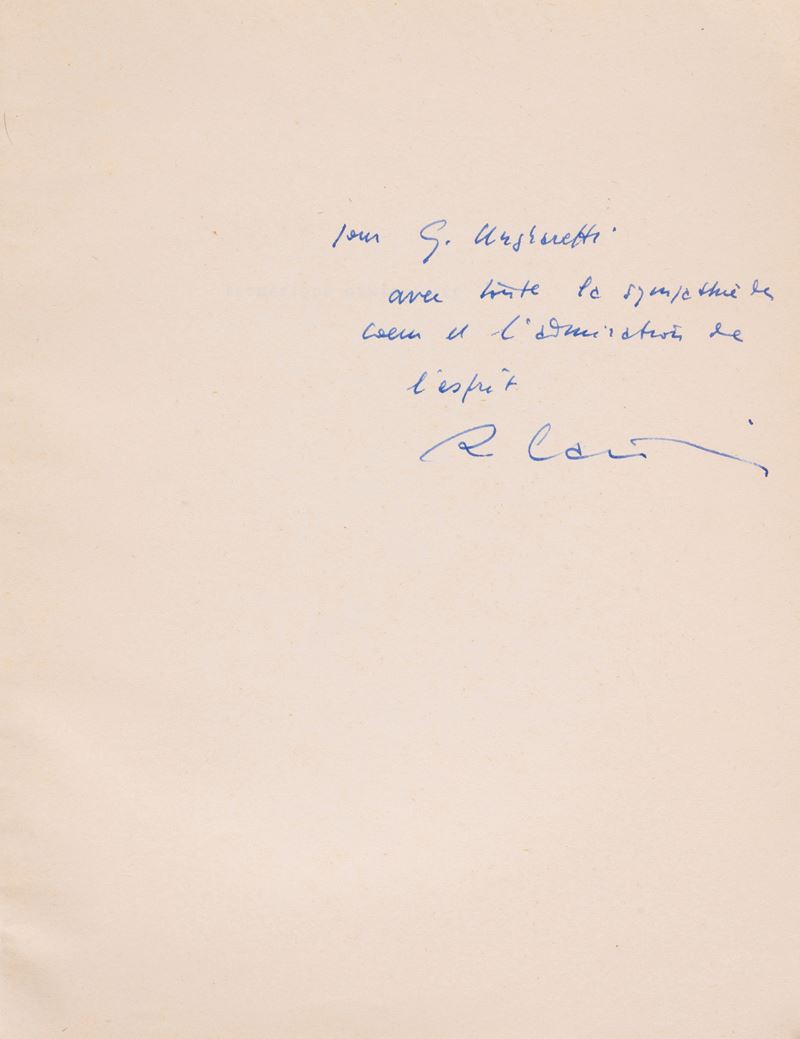 pour G. Ungaretti
avec toute la sympathie du
coeur et l'admiration de
l'esprit
R